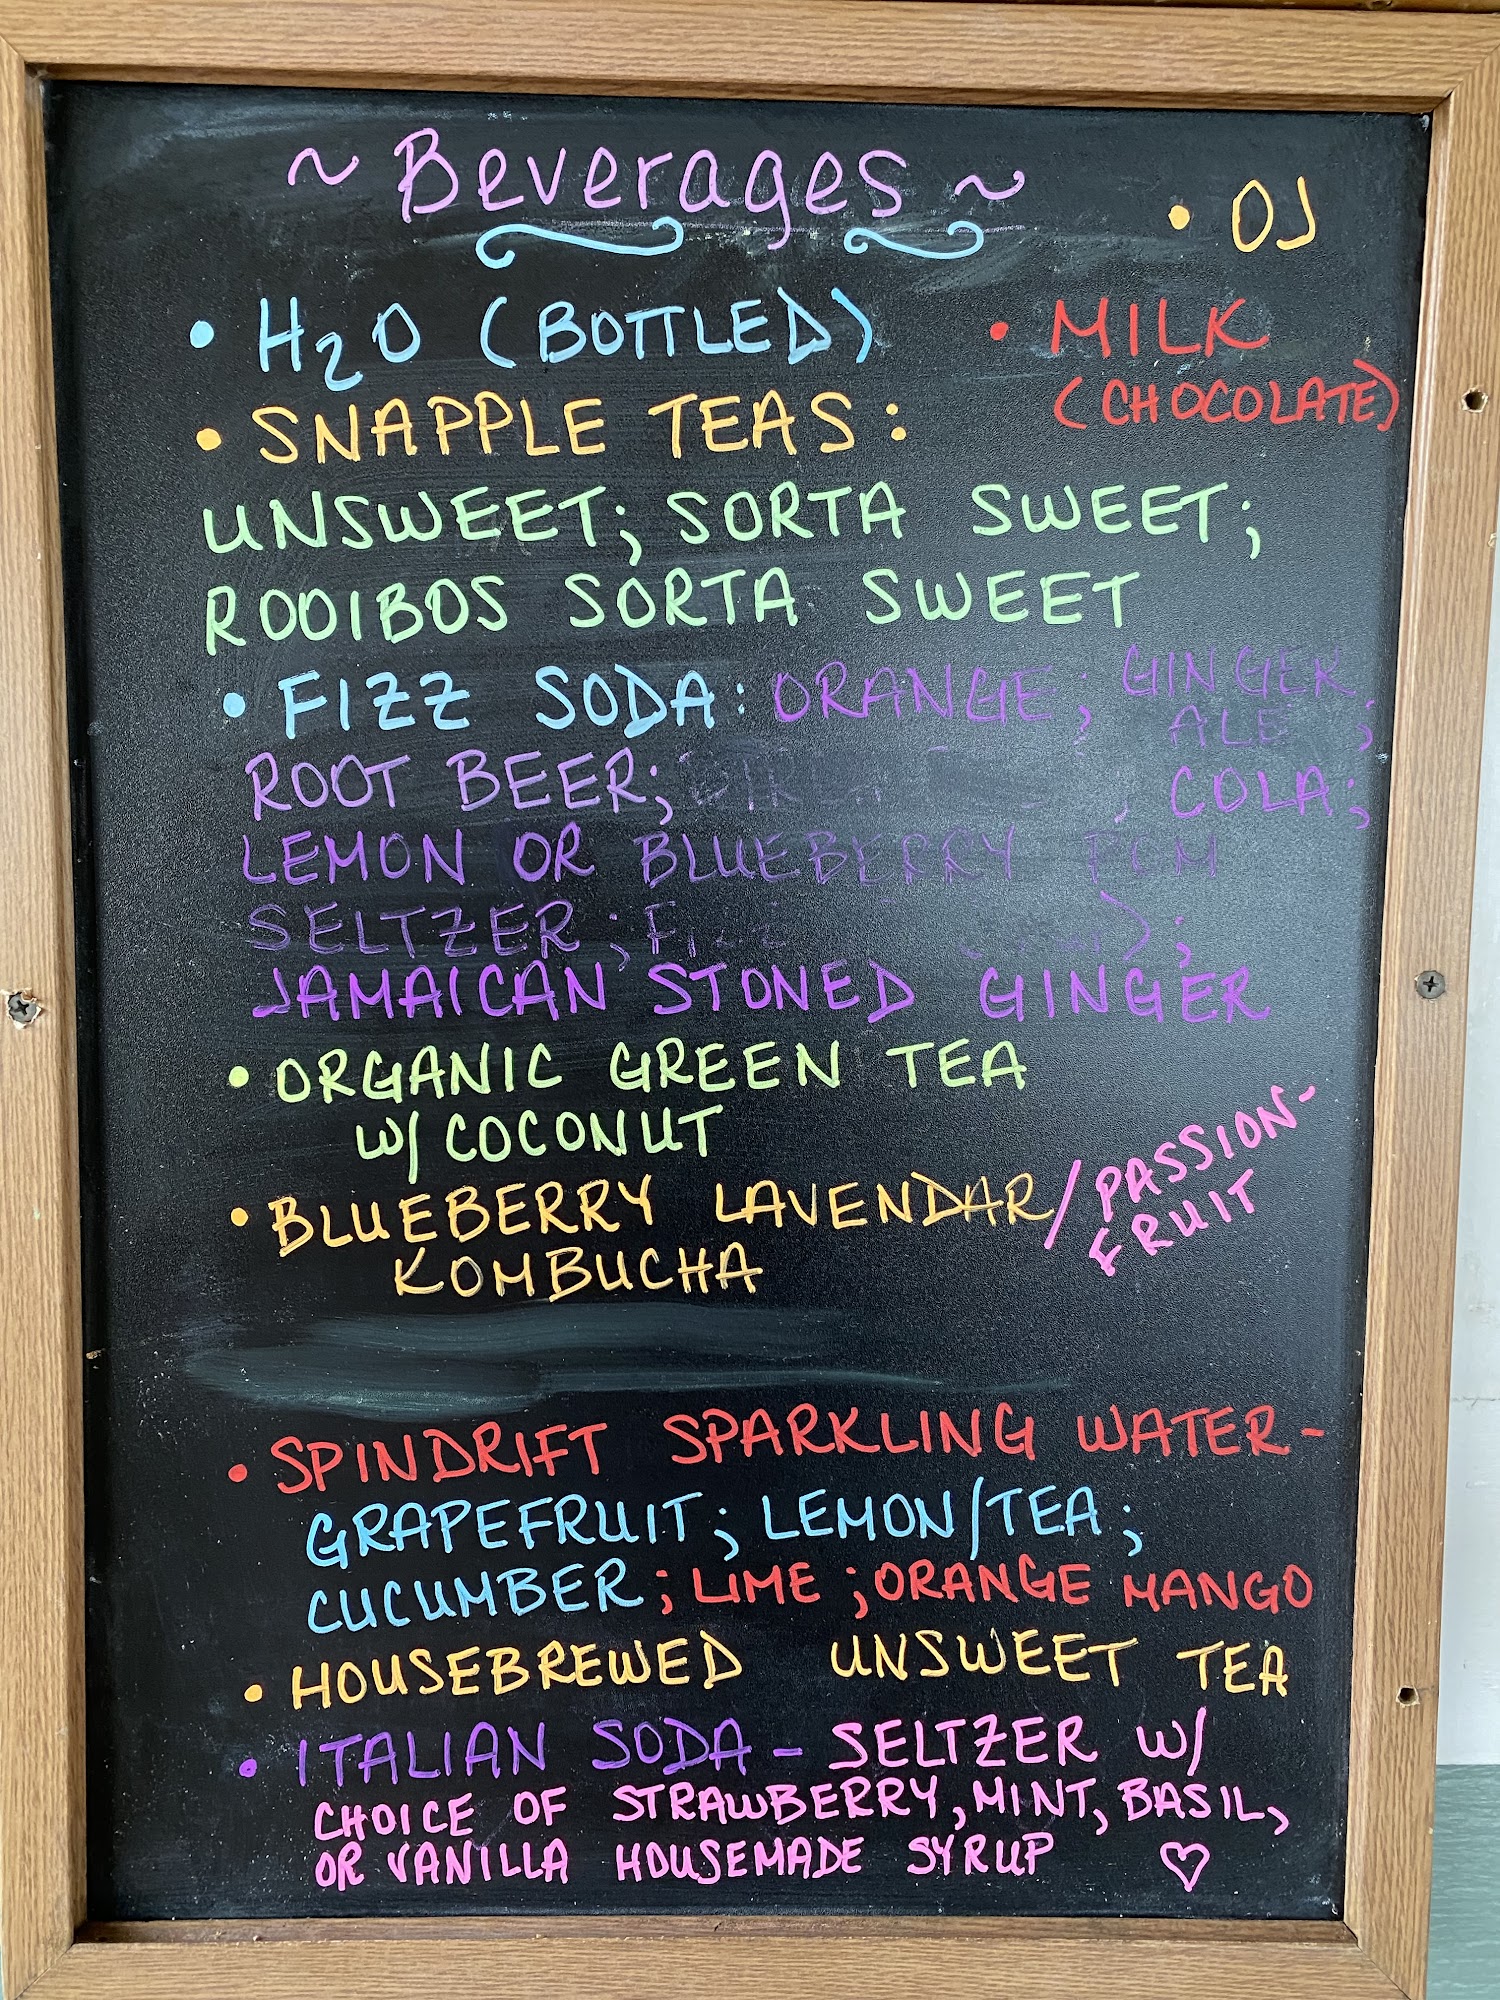 ~ Beverages ~
• OJ
• H2O (BOTTLED)
• MILK
(CHOCOLATE)
• SNAPPLE TEAS:
UNSWEET; SORTA SWEET;
ROOIBOS SORTA SWEET
• FIZZ SODA: ORANGE; GINGER
ALE;
ROOT BEER; COLA;
LEMON OR BLUEBERRY POM
SELTZER;
JAMAICAN STONED GINGER
• ORGANIC GREEN TEA
W/ COCONUT
• BLUEBERRY LAVENDAR / PASSION-
FRUIT
KOMBUCHA
• SPINDRIFT SPARKLING WATER-
GRAPEFRUIT; LEMON/TEA;
CUCUMBER; LIME; ORANGE MANGO
• HOUSEBREWED UNSWEET TEA
• ITALIAN SODA - SELTZER W/
CHOICE OF STRAWBERRY, MINT, BASIL,
OR VANILLA HOUSEMADE SYRUP ♡